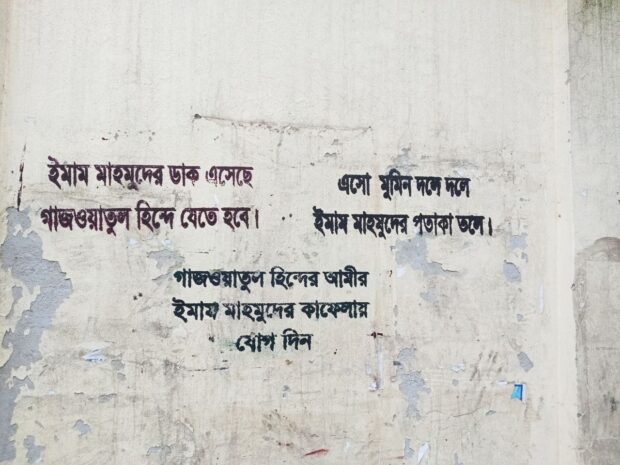 ইমাম মাহমুদের ডাক এসেছে
গাজওয়াতুল হিন্দে যেতে হবে।
এসো মুমিন দলে দলে
ইমাম মাহমুদের পতাকা তলে।
গাজওয়াতুল হিন্দের আমীর
ইমাম মাহমুদের কাফেলায়
যোগ দিন